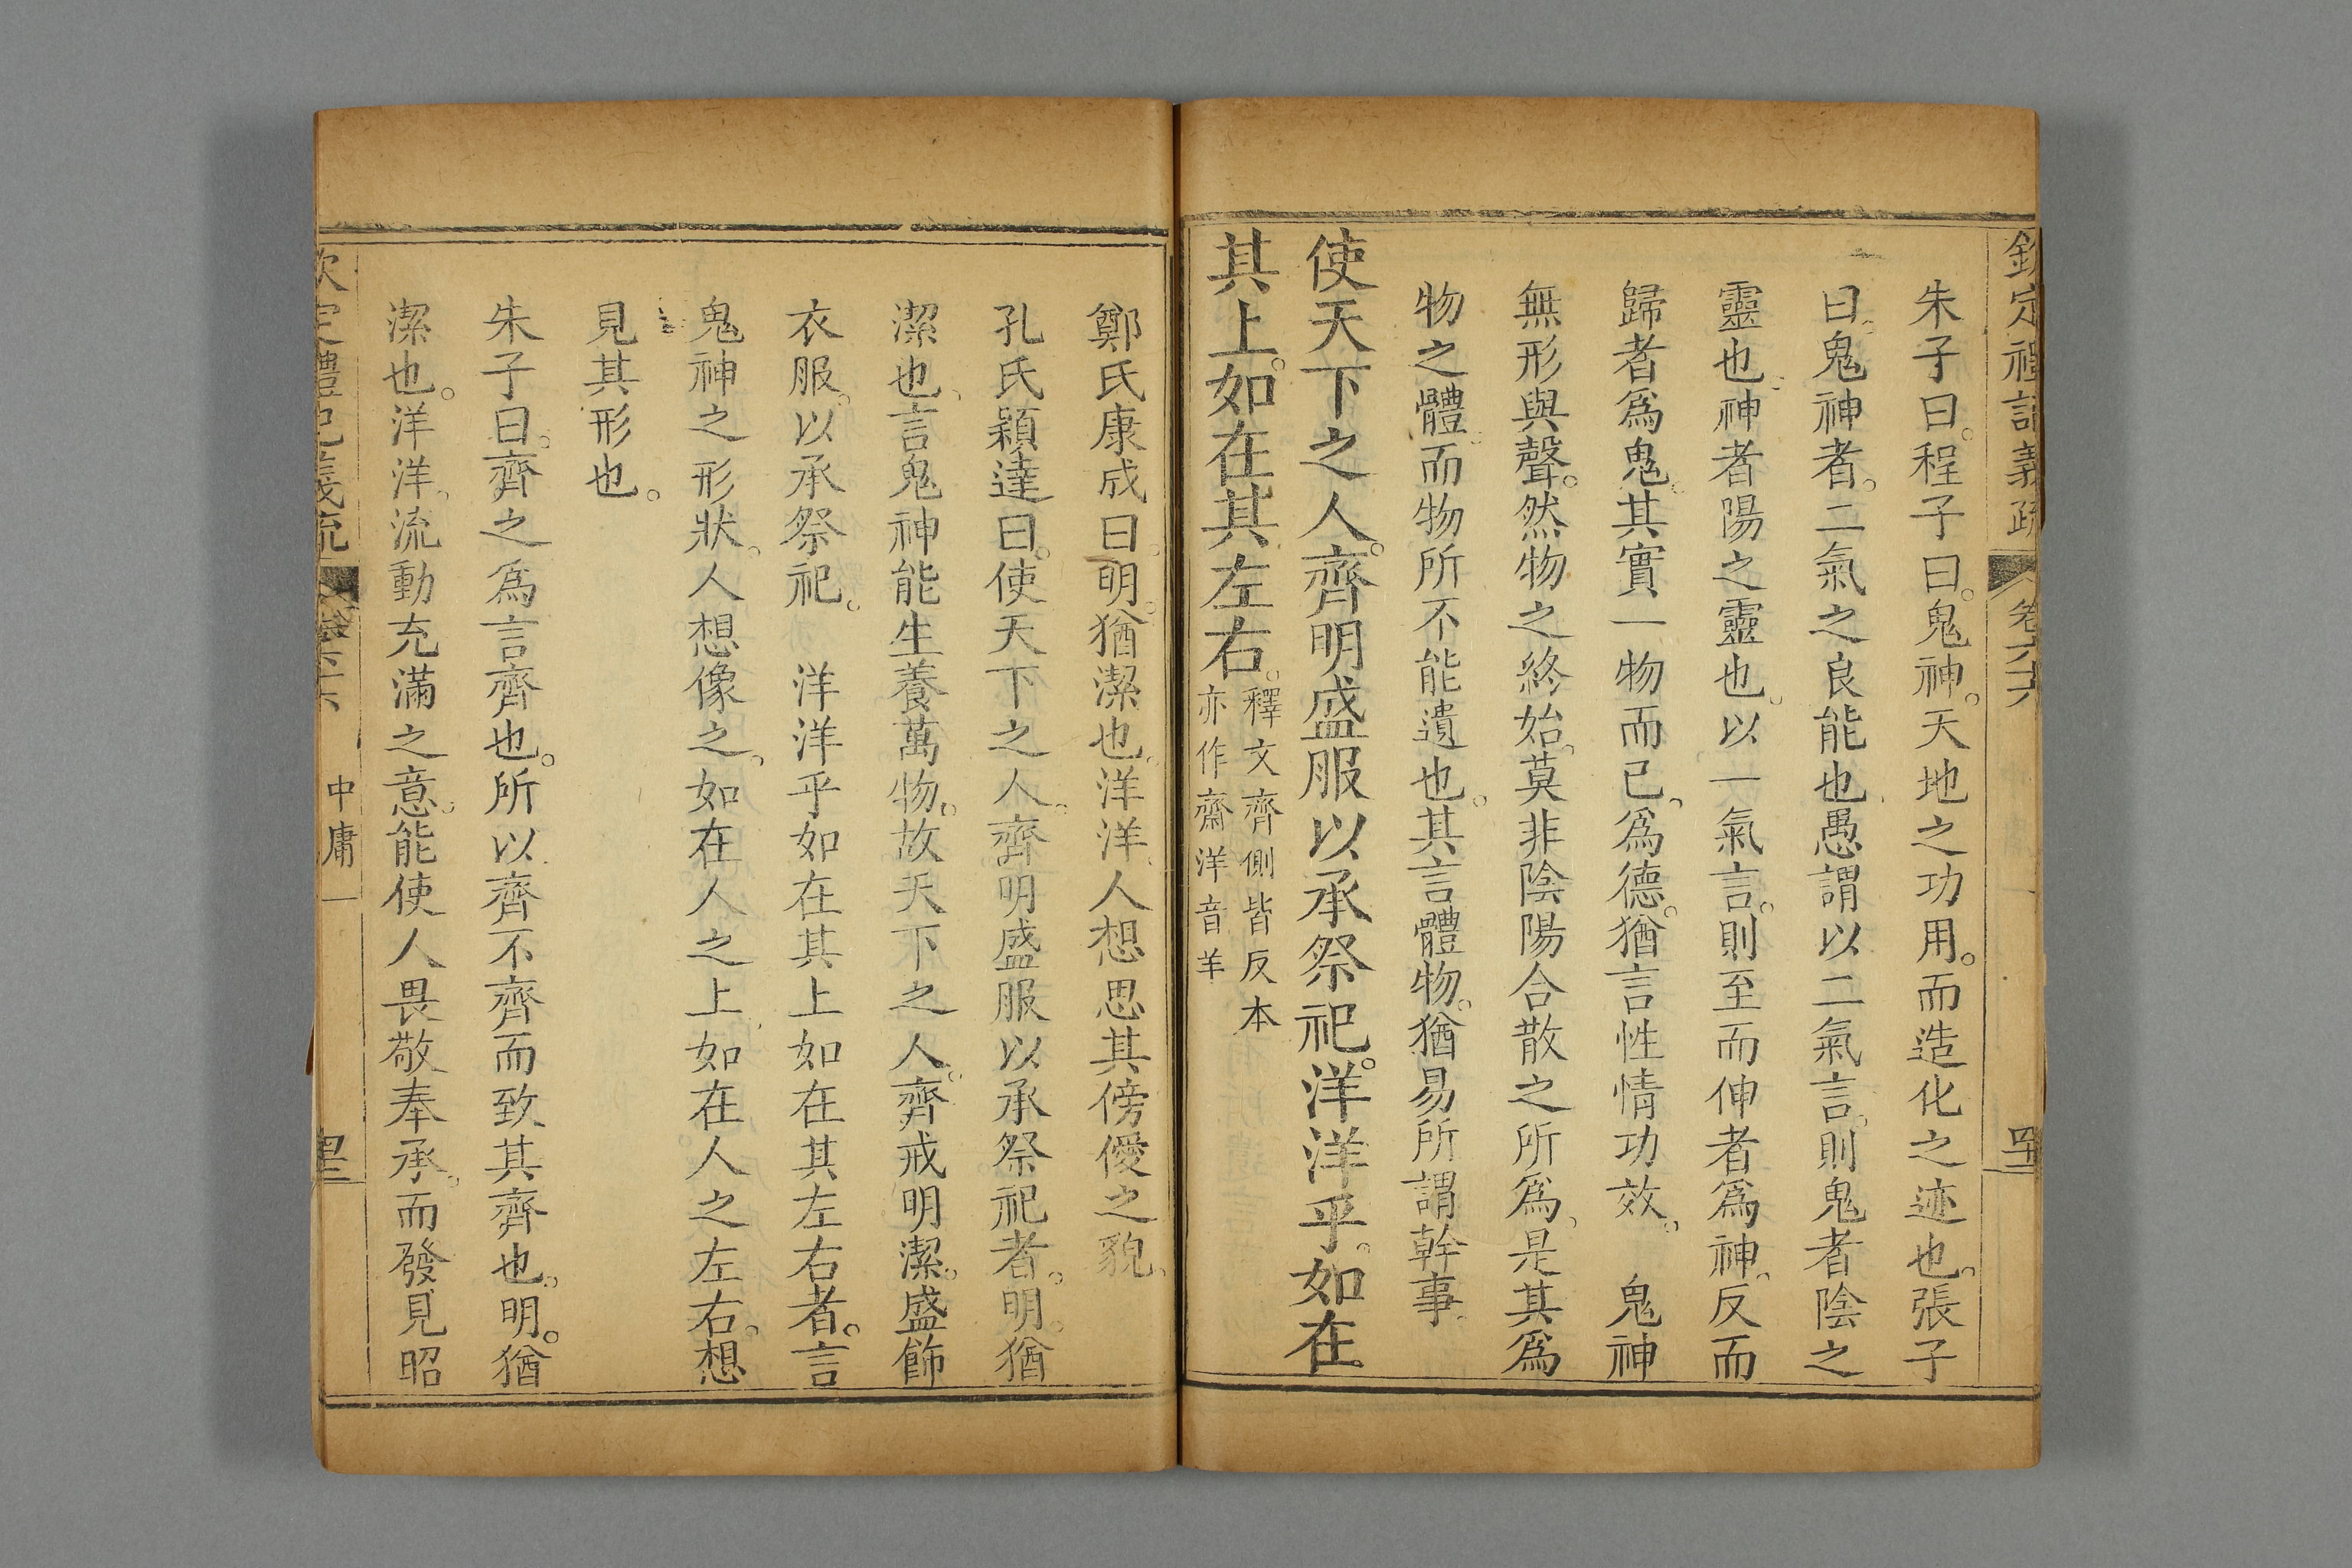 欽定禮記義疏 卷六六
朱子曰。程子曰。鬼神。天地之功用。而造化之迹也。張子
曰。鬼神者。二氣之良能也愚謂以二氣言。則鬼者陰之
靈也。神者陽之靈也。以一氣言。則至而伸者爲神。反而
歸者爲鬼。其實一物而已。爲德。猶言性情功效。 鬼神
無形與聲。然物之終始。莫非陰陽合散之所爲。是其爲
物之體。而物所不能遺也。其言體物。猶易所謂幹事。
使天下之人。齊明盛服以承祭祀。洋洋乎。如在
其上。如在其左右。釋文齊側皆反本
亦作齋洋音羊
鄭氏康成曰。明。猶潔也。洋洋。人想思其傍僾之貌。
孔氏穎達曰。使天下之人。齊明盛服以承祭祀者。明。猶
潔也。言鬼神能生養萬物。故天下之人。齊戒明潔。盛飾
衣服。以承祭祀。 洋洋乎如在其上如在其左右者。言
鬼神之形狀。人想像之。如在人之上。如在人之左右。想
見其形也。
朱子曰。齊之爲言齊也。所以齊不齊而致其齊也。明。猶
潔也。洋洋。流動充滿之意。能使人畏敬奉承。而發見昭
欽定禮記義疏 卷六六 中庸一